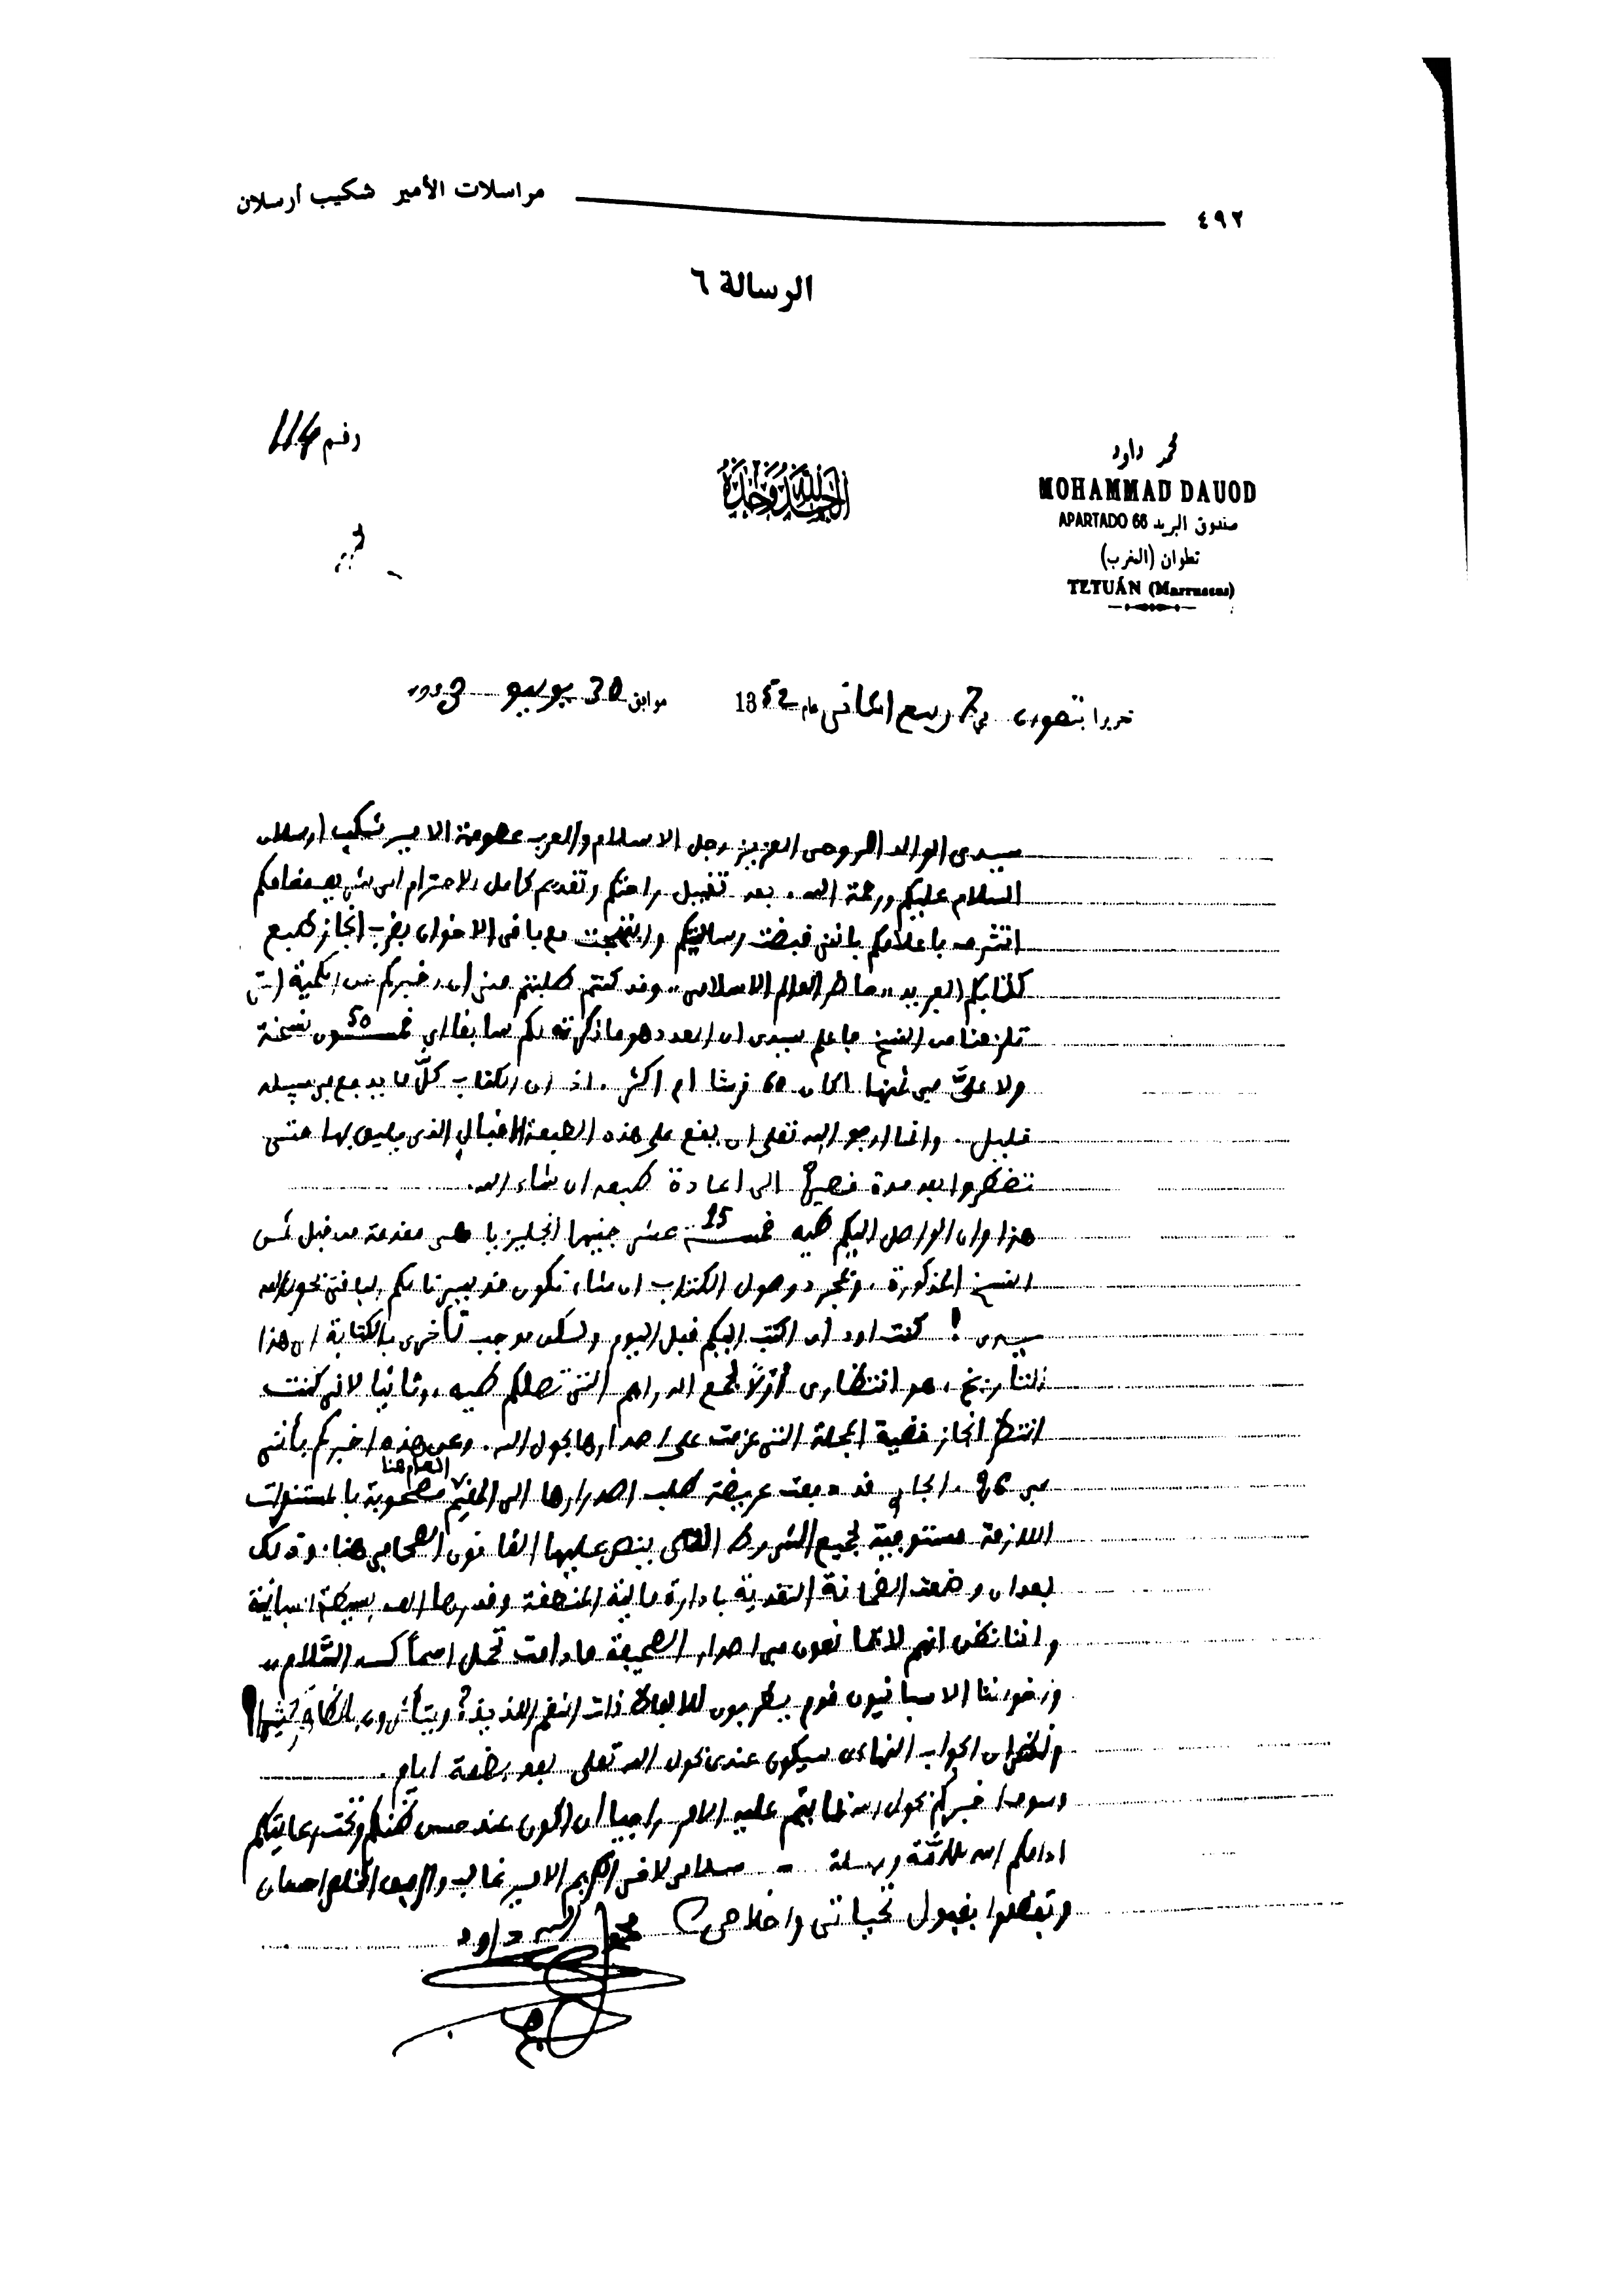 ٤٩٢ مراسلات الأمير شكيب أرسلان
الرسالة ٦
رقم 114
محمد داود
MOHAMMAD DAUOD
APARTADO 66 صندوق البريد
تطوان (المغرب)
TETUÁN (Marruecos)
الحمد لله وحده
تحريرا بتطوان في 7 ربيع الثاني عام 1352 موافق 30 يوليو
سيدي الوالد الروحي العزيز رجل الاسلام والعرب عطوفة الامير شكيب ارسلان
السلام عليكم ورحمة الله . بعد تقبيل راحتكم وتقديم كامل الاحترام الى شريف مقامكم
اتشرف باعلامكم بانني قبضت رسالتكم وابتهجت مع باقي الاخوان بقرب انجاز طبع
كتابكم الفريد ,,حاضر العالم الاسلامي,, وقد كنتم طلبتم مني ان اخبركم عن الكمية التي
تلزمنا من النسخ فاعلم سيدي ان العدد هو ما ذكرته لكم سابقا اي خمسون 50 نسخة
ولا علي في ثمنها اكان 60 قرشا ام اكثر . اذ ان الكتاب كل ما يدفع في سبيله
قليل . وانما ارجو الله تعلى ان يقع على هذه الطبعة الاقبال الذي يليق بها حتى
تضطروا بعد مدة قصيرة الى اعادة طبعه ان شاء الله .
هذا وان الواصل اليكم طيه خمسة 15 عشر جنيها انجليزيا هي مقدمة من قبل ثمن
النسخ المذكورة . وبمجرد وصول الكتاب ان شاء نكون قد يسرنا لكم الباقي بحول الله
سيدي ! كنت اود ان اكتب اليكم قبل اليوم ولكن موجب تأخري بالكتابة الى هذا
التاريخ ، هو انتظاري اولاً لجمع الدراهم التي تصلكم طيه . وثانيا لاني كنت
انتظر انجاز قضية المجلة التي عزمت على اصدارها بحول الله . وعن هذه اخبركم بأنني
في 26 الجاري قد دفعت عريضة طلب اصدارها الى المقيم العام هنا مصحوبة بالمستندات
اللازمة مستوفية لجميع الشروط التي ينص عليها القانون الصحافي هنا . وذلك
بعد ان وضعت الضمانة النقدية بادارة مالية المنطقة وقدرها الف بسيطة اسبانية
واننا نظن انهم لا يمانعون في اصدار الصحيفة ما دامت تحمل اسماً كـ السلام ,,
واخواننا الاسبانيون قوم يطربون للالفاظ ذات النغم اللذيذ ؟ ويتأثرون
ان الجواب النهائي سيكون عندي بحول الله تعلى بعد بضعة ايام .
وسوف اخبركم بحول الله بما يتم عليه الامر راجيا ان اكون عند حسن ظنكم وتحت رعايتكم
ادامكم الله للأمة وسيلة - سلامي لاخي الكريم الامير غالب والرفيق المخلص احسان
وتفضلوا بقبول تحياتي واخلاصي محمد داود